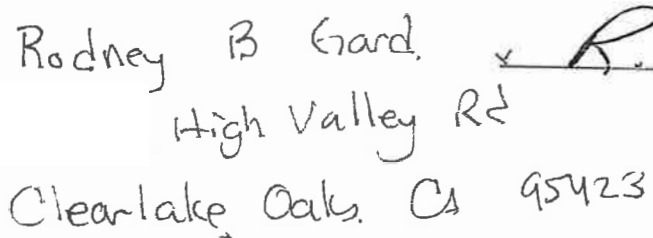 Rodney B Gard.
High Valley Rd
Clearlake Oaks. CA 95423